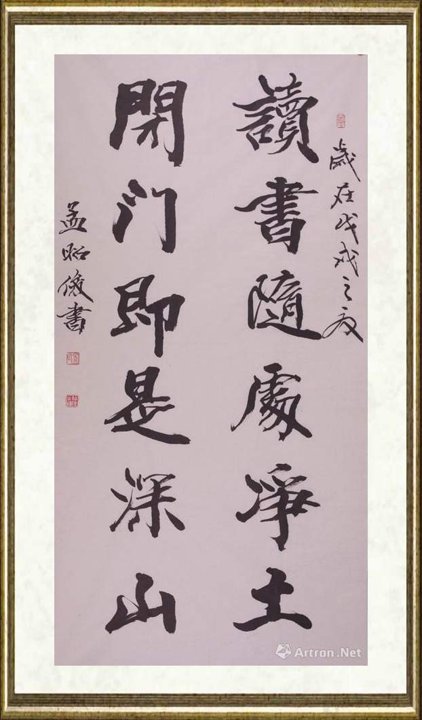 歲在戊戌之夏
讀書隨處淨土
閉門即是深山
孟昭俊書
Artron.Net